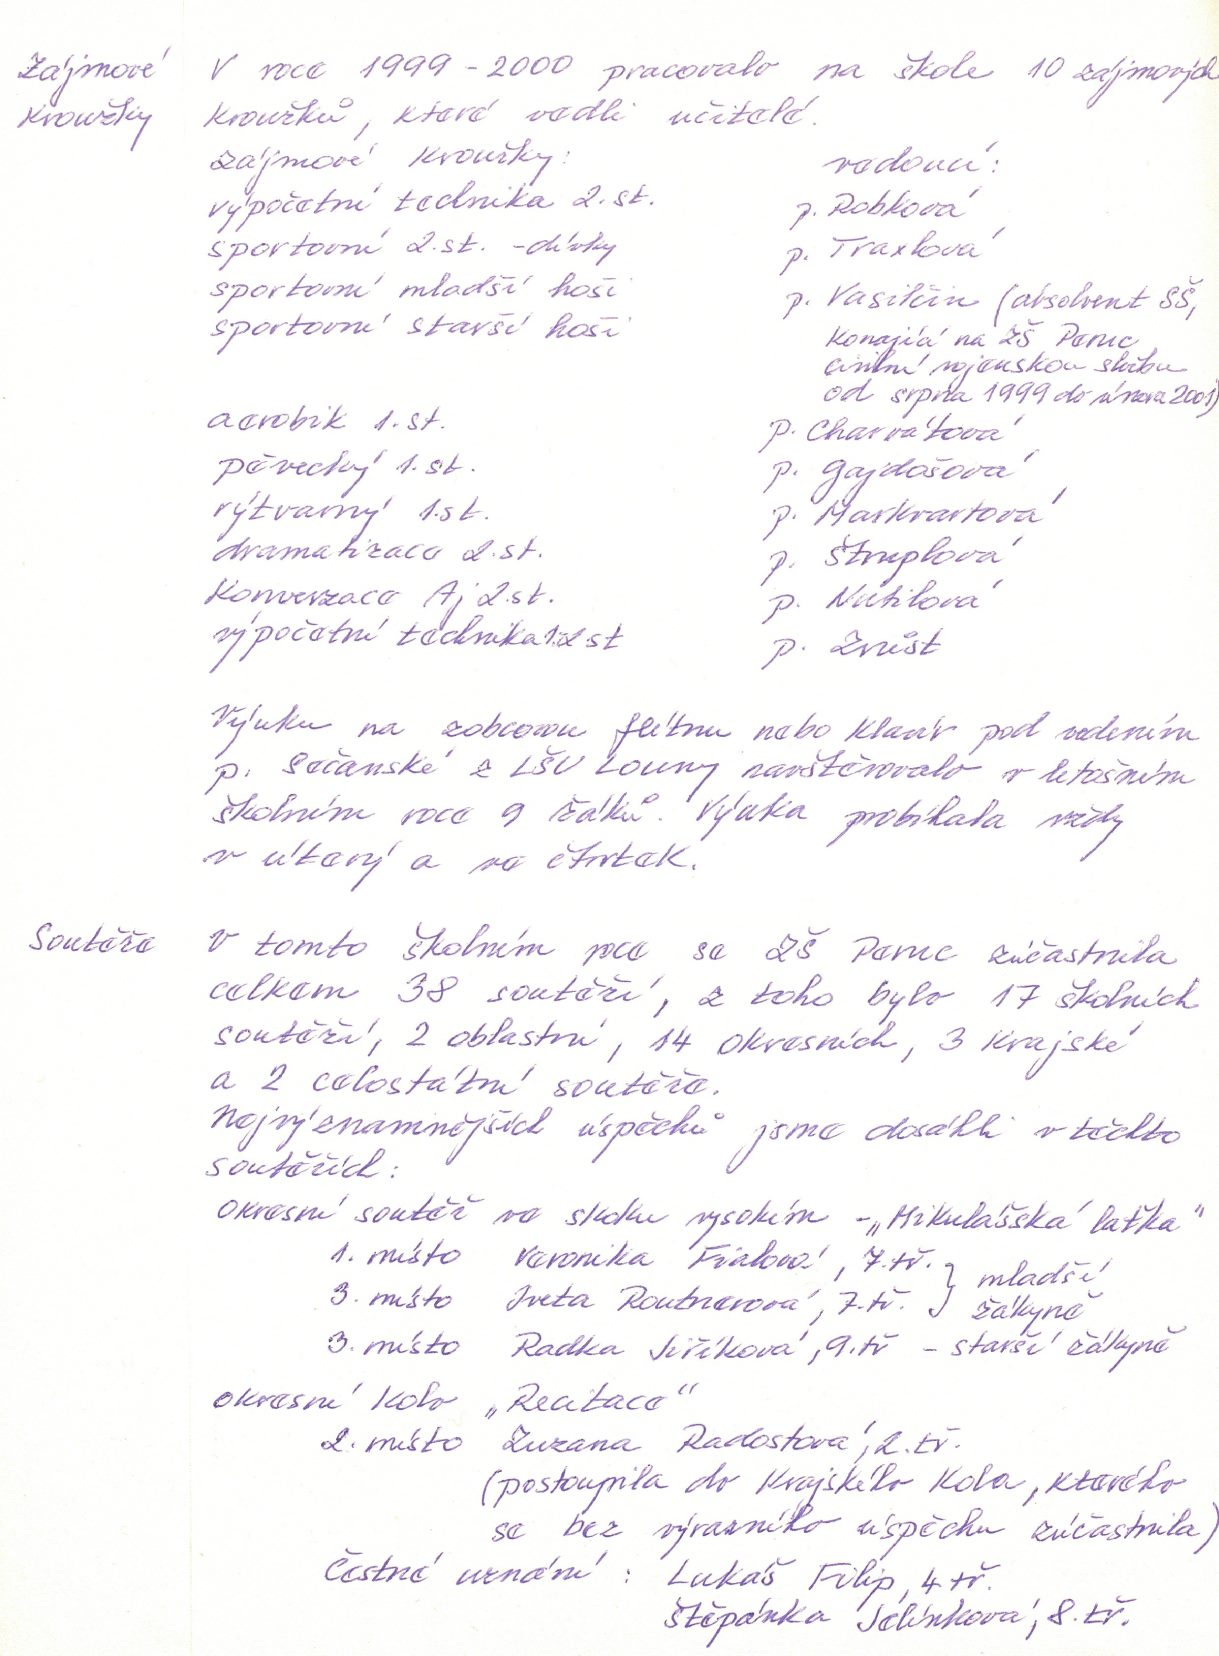 Zájmové kroužky
V roce 1999 - 2000 pracovalo na škole 10 zájmových
kroužků, které vedli učitelé.
zájmové kroužky: vedoucí:
výpočetní technika 2. st. p. Robková
sportovní 2. st. - dívky p. Traxlová
sportovní mladší hoši p. Vasilčin (absolvent SŠ,
sportovní starší hoši konající na ZŠ Peruc
civilní vojenskou službu
od srpna 1999 do února 2001)
aerobik 1. st. p. Charvátová
pěvecký 1. st. p. Gajdošová
výtvarný 1. st. p. Markvartová
dramatizace 2. st. p. Štruplová
Konverzace Aj 2. st. p. Nutilová
výpočetní technika 1. 2 st p. Zrůst
Výuku na zobcovou flétnu nebo klavír pod vedením
p. Sečanské z LŠU Louny navštěvovalo v letošním
školním roce 9 žáků. Výuka probíhala vždy
v úterý a ve čtvrtek.
Soutěže
V tomto školním roce se ZŠ Peruc zúčastnila
celkem 38 soutěží, z toho bylo 17 školních
soutěží, 2 oblastní, 14 okresních, 3 krajské
a 2 celostátní soutěže.
Nejvýznamnějších úspěchů jsme dosáhli v těchto
soutěžích:
okresní soutěž ve skoku vysokém - „Mikulášská laťka"
1. místo Veronika Fialová, 7. tř. } mladší
3. místo Iveta Routnerová, 7. tř. } žákyně
3. místo Radka Jiříková, 9. tř - starší žákyně
okresní kolo „Recitace"
2. místo Zuzana Radostová, 2. tř.
(postoupila do krajského kola, kterého
se bez výrazného úspěchu zúčastnila)
čestné uznání : Lukáš Filip, 4 tř.
Štěpánka Jelínková, 8. tř.